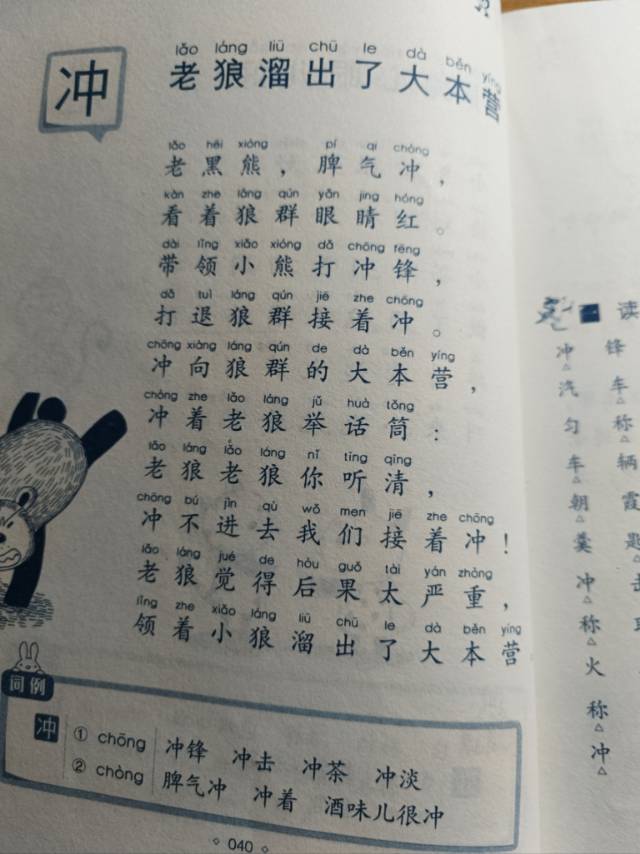 冲
lǎo láng liū chū le dà běn yíng
老狼溜出了大本营
lǎo hēi xióng pí qi chòng
老黑熊，脾气冲，
kàn zhe láng qún yǎn jing hóng
看着狼群眼睛红。
dài lǐng xiǎo xióng dǎ chōng fēng
带领小熊打冲锋，
dǎ tuì láng qún jiē zhe chōng
打退狼群接着冲。
chōng xiàng láng qún de dà běn yíng
冲向狼群的大本营，
chòng zhe lǎo láng jǔ huà tǒng
冲着老狼举话筒：
lǎo láng lǎo láng nǐ tīng qīng
老狼老狼你听清，
chōng bú jìn qù wǒ men jiē zhe chōng
冲不进去我们接着冲！
lǎo láng jué de hòu guǒ tài yán zhòng
老狼觉得后果太严重，
lǐng zhe xiǎo láng liū chū le dà běn yíng
领着小狼溜出了大本营
同例
冲
① chōng 冲锋 冲击 冲茶 冲淡
② chòng 脾气冲 冲着 酒味儿很冲
040
一 读
冲锋
汽车
匀称
车辆
朝霞
羹匙
冲击
称
火
称
冲